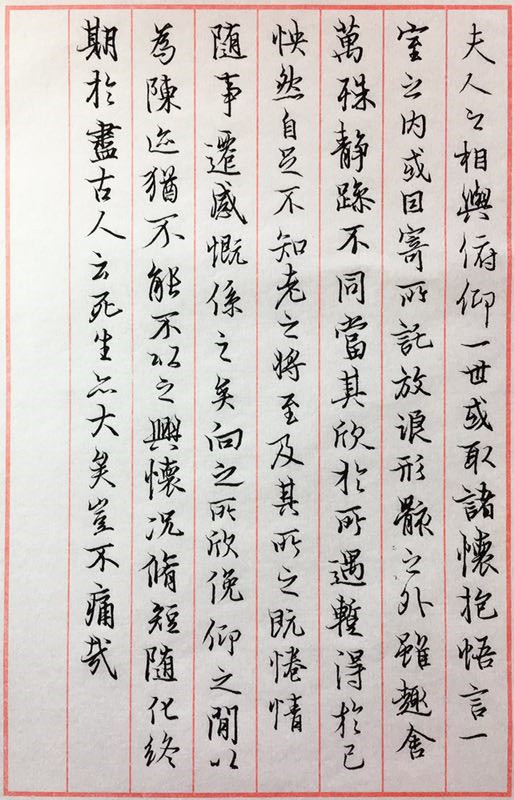 夫人之相與俯仰一世或取諸懷抱悟言一
室之内或因寄所託放浪形骸之外雖趣舍
萬殊静躁不同當其欣於所遇暫得於己
怏然自足不知老之將至及其所之既惓情
随事遷感慨係之矣向之所欣俛仰之間以
為陳迹猶不能不以之興懷况脩短随化終
期於盡古人云死生亦大矣豈不痛哉